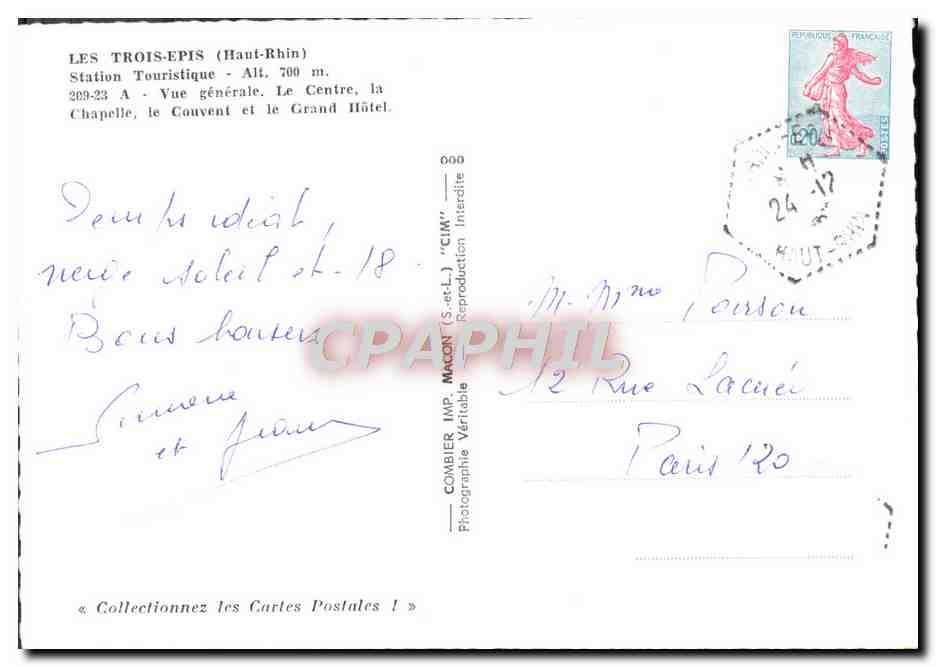 LES TROIS-EPIS (Haut-Rhin)
Station Touristique - Alt. 700 m.
209-23 A - Vue générale. Le Centre, la
Chapelle, le Couvent et le Grand Hôtel.
REPUBLIQUE FRANÇAISE
0,20
POSTES
24 -12
HAUT-RHIN
Temps idéal,
neige soleil et -18
Bons baisers
Simone
et Jean
COMBIER IMP. MACON (S.-et-L.) "CIM"
Photographie Véritable Reproduction Interdite
M. Mme Poirson
12 Rue Lacuée
Paris 12o
CPAPHIL
« Collectionnez les Cartes Postales ! »